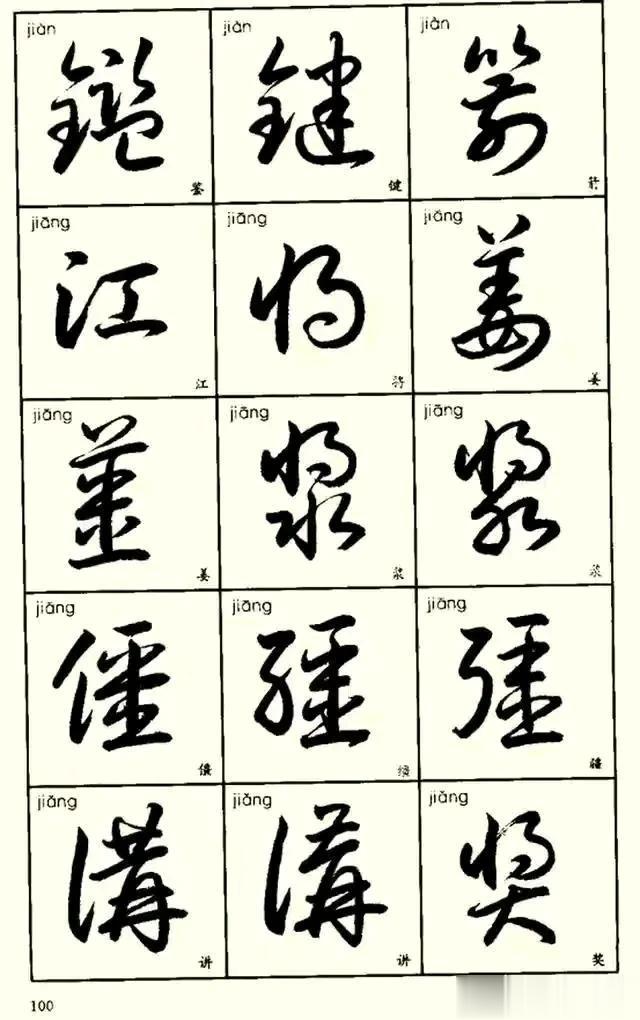 jiàn jiàn jiàn
鑑 鍵 箭
鉴 键 箭
jiāng jiāng jiāng
江 将 姜
江 将 姜
jiāng jiāng jiāng
薑 浆 浆
姜 浆 浆
jiāng jiāng jiāng
僵 繮 疆
僵 缰 疆
jiǎng jiǎng jiǎng
講 講 奖
讲 讲 奖
100